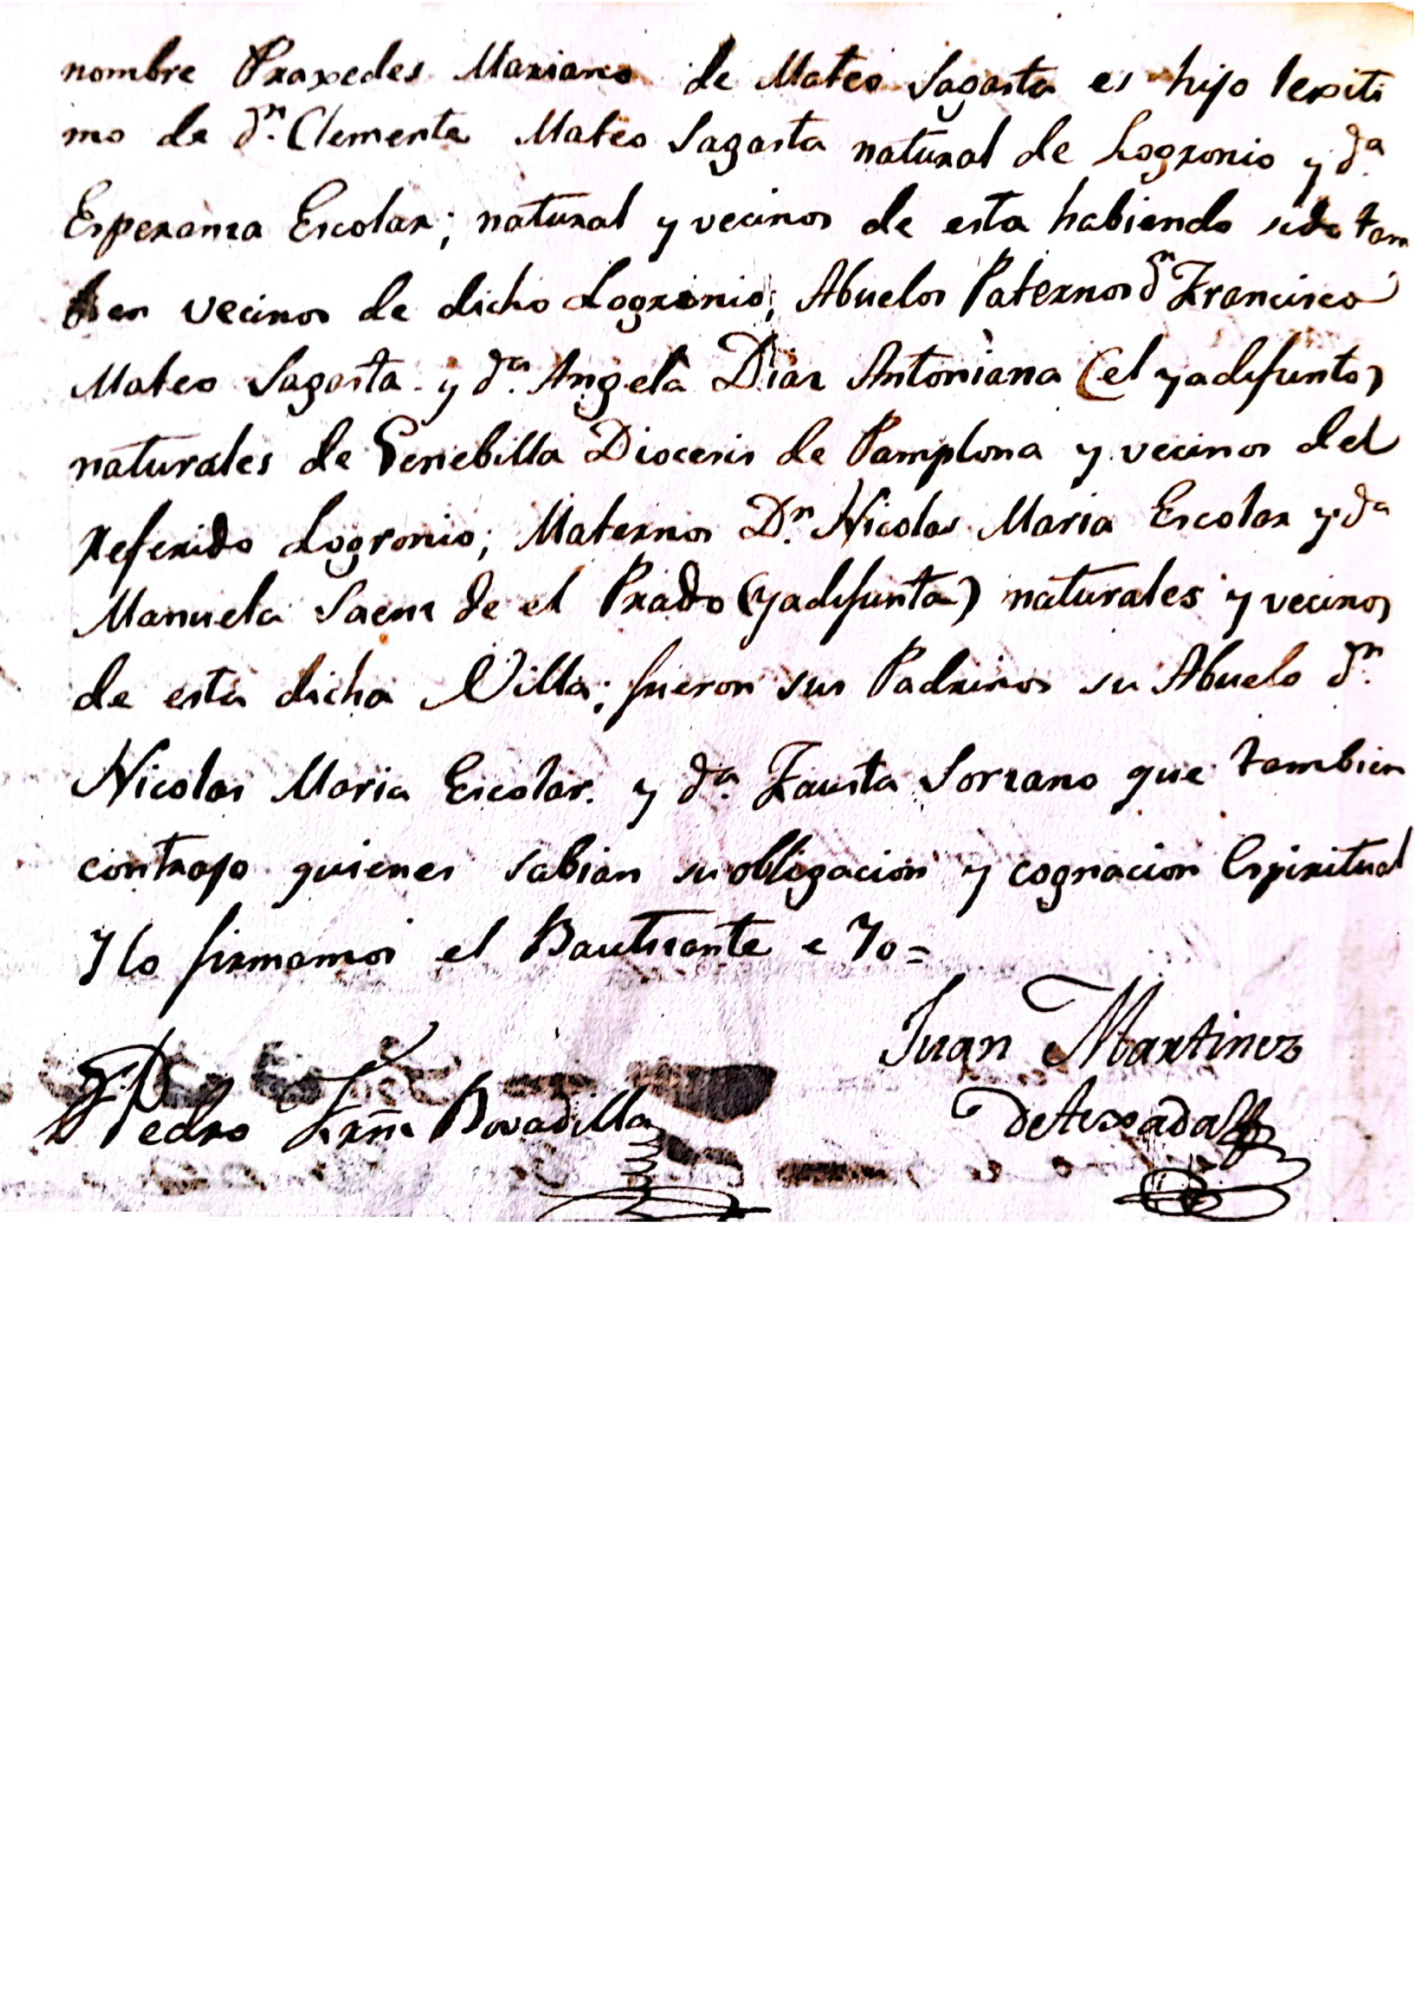 nombre Praxedes Mariano de Mateo Sagasta es hijo lexiti
mo de dⁿ. Clemente Mateo Sagasta natural de Logronio y dᵃ.
Esperanza Escolar; natural y vecinos de esta habiendo sido tam
bien vecinos de dicho Logronio; Abuelos Paternos dⁿ Francisco
Mateo Sagasta y dᵃ. Angela Diaz Antoniana (el ya difunto)
naturales de Genebilla Diocesis de Pamplona y vecinos del
referido Logronio; Maternos Dⁿ. Nicolas Maria Escolar y dᵃ
Manuela Saenz de el Prado (ya difunta) naturales y vecinos
de esta dicha Villa; fueron sus Padrinos su Abuelo dⁿ.
Nicolas Maria Escolar. y dᵃ. Fausta Sorzano que tambien
contrajo quienes sabian su obligacion y cognacion Espiritual
Y lo firmamos el Bautizante e Yo =
Juan Martinez
Pedro Bovadilla
De Texada